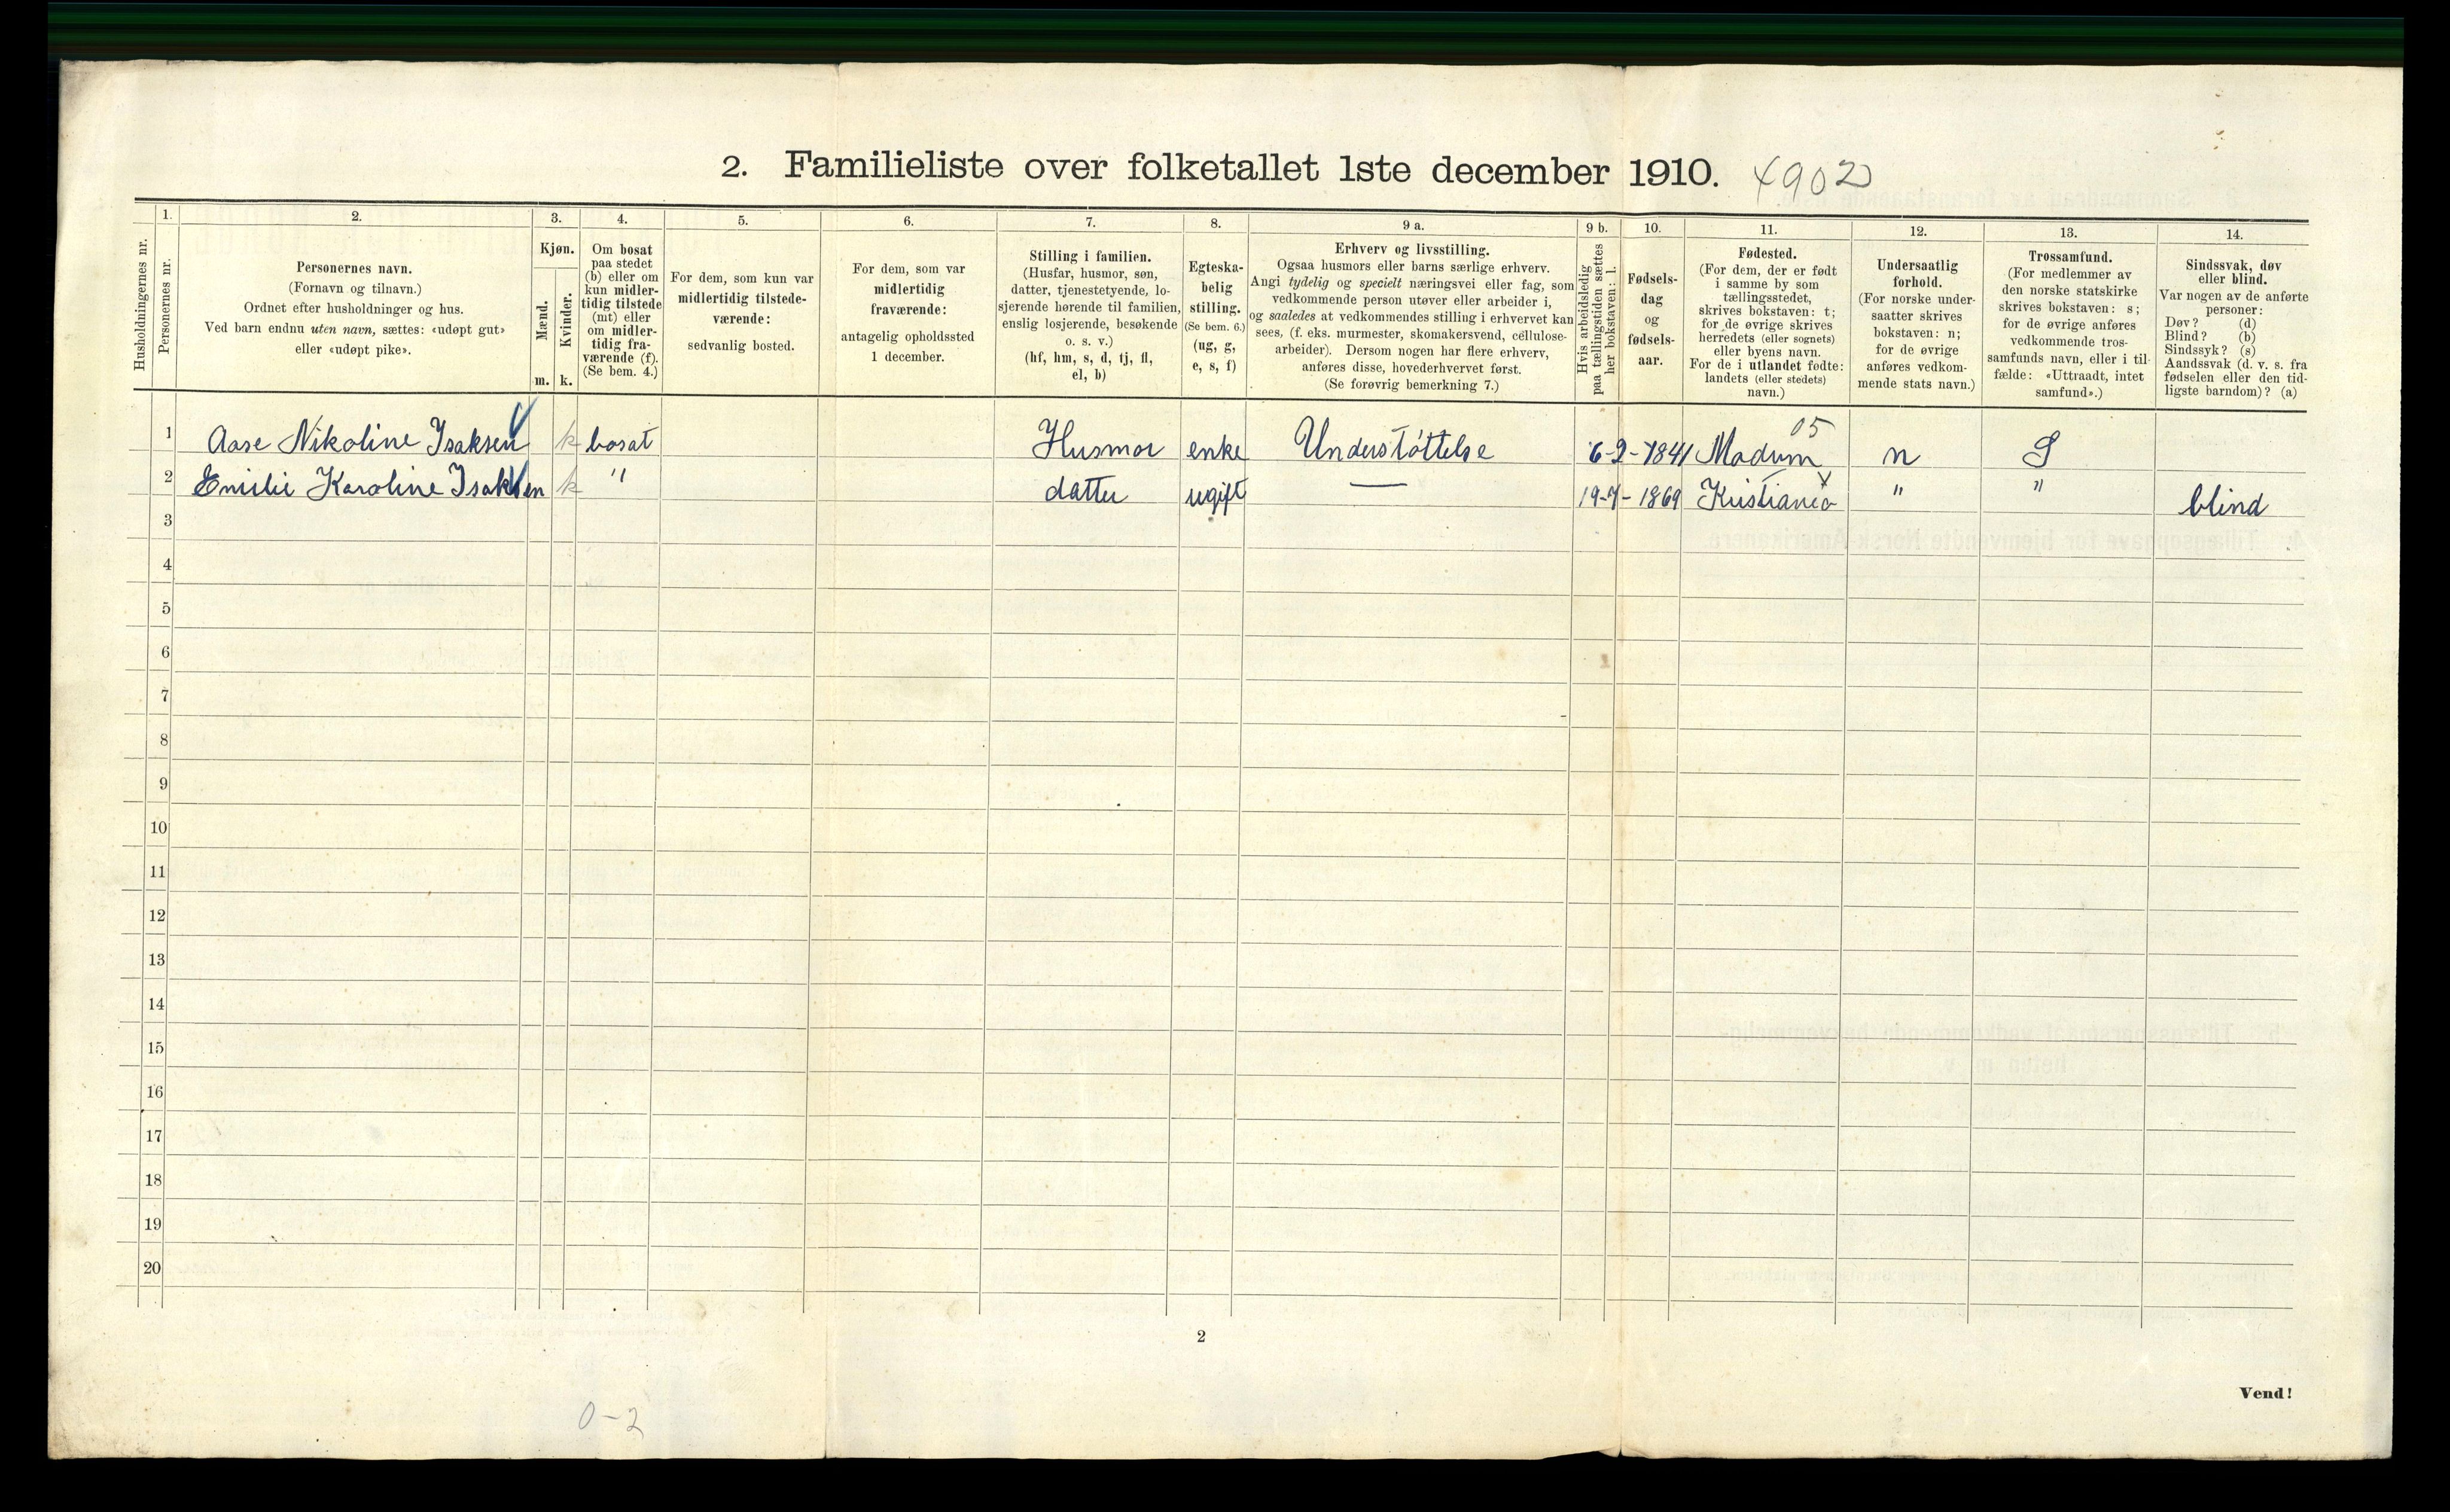 2. Familieliste over folketallet 1ste december 1910.
4902
1. 2. 3. 4. 5. 6. 7. 8. 9 a. 9 b. 10. 11. 12. 13. 14.
Husholdningernes nr.
Personernes nr.
Personernes navn.
(Fornavn og tilnavn.)
Ordnet efter husholdninger og hus.
Ved barn endnu uten navn, sættes: «udøpt gut»
eller «udøpt pike».
Kjøn.
Mænd.
Kvinder.
m. k.
Om bosat
paa stedet
(b) eller om
kun midler-
tidig tilstede
(mt) eller
om midler-
tidig fra-
værende (f).
(Se bem. 4.)
For dem, som kun var
midlertidig tilstede-
værende:
sedvanlig bosted.
For dem, som var
midlertidig
fraværende:
antagelig opholdssted
1 december.
Stilling i familien.
(Husfar, husmor, søn,
datter, tjenestetyende, lo-
sjerende hørende til familien,
enslig losjerende, besøkende
o. s. v.)
(hf, hm, s, d, tj, fl,
el, b)
Egteska-
belig
stilling.
(Se bem. 6.)
(ug, g,
e, s, f)
Erhverv og livsstilling.
Ogsaa husmors eller barns særlige erhverv.
Angi tydelig og specielt næringsvei eller fag, som
vedkommende person utøver eller arbeider i,
og saaledes at vedkommendes stilling i erhvervet kan
sees, (f. eks. murmester, skomakersvend, cellulose-
arbeider). Dersom nogen har flere erhverv,
anføres disse, hovederhvervet først.
(Se forøvrig bemerkning 7.)
Hvis arbeidsledig
paa tællingstiden sættes
her bokstaven: l.
Fødsels-
dag
og
fødsels-
aar.
Fødested.
(For dem, der er født
i samme by som
tællingsstedet,
skrives bokstaven: t;
for de øvrige skrives
herredets (eller sognets)
eller byens navn.
For de i utlandet fødte:
landets (eller stedets)
navn.)
Undersaatlig
forhold.
(For norske under-
saatter skrives
bokstaven: n;
for de øvrige
anføres vedkom-
mende stats navn.)
Trossamfund.
(For medlemmer av
den norske statskirke
skrives bokstaven: s;
for de øvrige anføres
vedkommende tros-
samfunds navn, eller i til-
fælde: «Uttraadt, intet
samfund».)
Sindssvak, døv
eller blind.
Var nogen av de anførte
personer:
Døv? (d)
Blind? (b)
Sindssyk? (s)
Aandssvak (d. v. s. fra
fødselen eller den tid-
ligste barndom)? (a)
05
1 Aase Nikoline Isaksen k bosat Husmor enke Understøttelse 6-2-1841 Modum n S
2 Emilie Karoline Isaksen k " datter ugift — 19-7-1869 Kristiania " " blind
3
4
5
6
7
8
9
10
11
12
13
14
15
16
17
18
19
20
2
Vend!
0-2